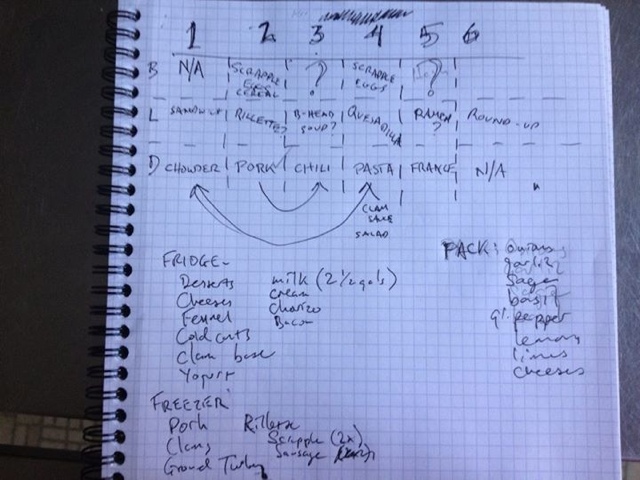 1 2 3 4 5 6
B N/A SCRAPPLE EGGS CEREAL ? SCRAPPLE EGGS ?
L SANDWICH RILLETTES B-HEAD SOUP? QUESADILLA RAMEN? ROUND-UP
D) CHOWDER PORK CHILI PASTA FRANCE N/A
CLAM
SAUCE
SALAD
PACK: onions
garlic
sage
basil
gr. pepper
lemons
limes
cheeses
FRIDGE-
Desserts milk (2 1/2 gals)
Cheeses cream
Fennel Chorizo
Cold cuts Bacon
Clam base
Yogurt
FREEZER
Pork Rillette
Clams Scrapple (2x)
Ground Turkey Sausage